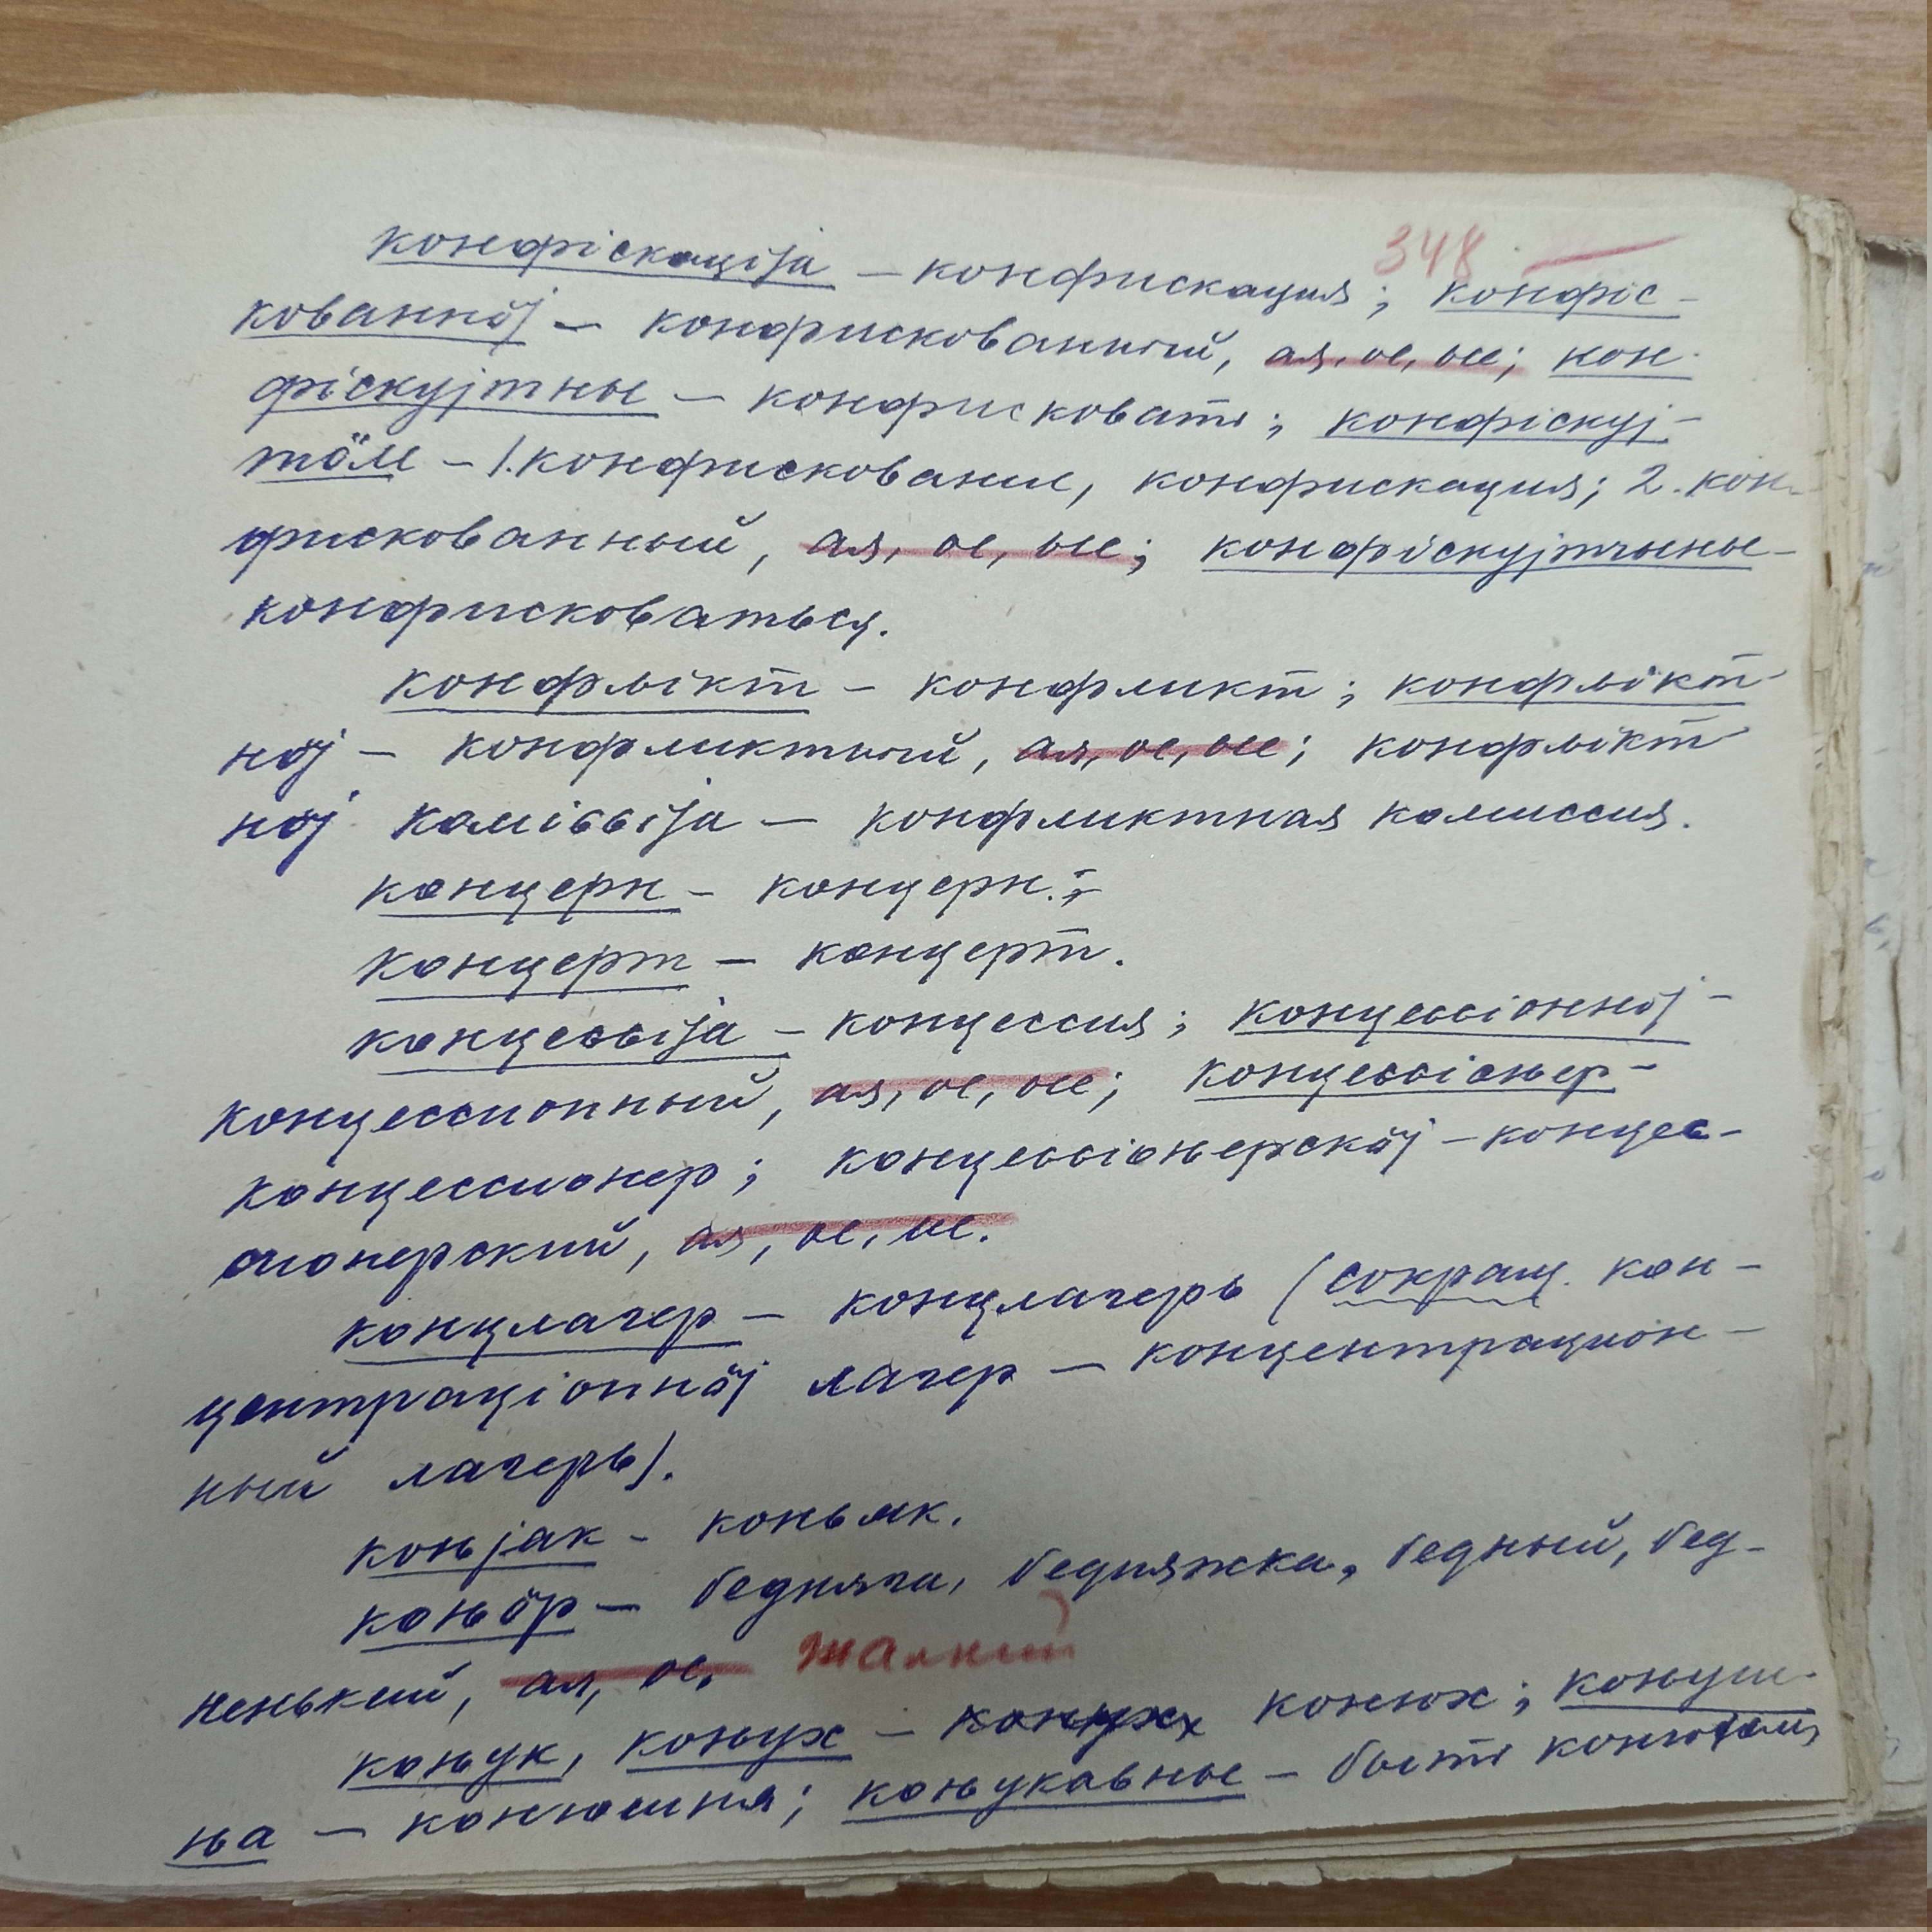 348
конфіскаціја – конфискация; конфіс-
кованнӧј – конфискованный, ая, ое, ые; кон-
фіскујтны – конфисковать; конфіскуј-
тӧм – 1. конфискование, конфискация; 2. кон-
фискованный, ая, ое, ые; конфіскујтчыны –
конфисковаться.
конфлікт – конфликт; конфлікт-
нӧј – конфликтный, ая, ое, ые; конфлікт-
нӧј коміԍԍіја – конфликтная комиссия.
концерн – концерн.;
концерт – концерт.
концеԍԍіја – концессия; концеԍԍіоннӧј –
концессионный, ая, ое, ые; концеԍԍіоԋер –
концессионер; концеԍԍіоԋерскӧј – концес-
сионерский, ая, ое, ие.
концлагер – концлагерь (сокращ. кон-
центраціоннӧј лагер – концентрацион-
ный лагерь).
коԋјак – коньяк.
коԋӧр – бедняга, бедняжка, бедный, бед-
ненький, ая, ое. жалкий
коԋук, коԋух – конух конюх; коԋуш-
ԋа – конюшня; коԋукавны – быть конюхом,